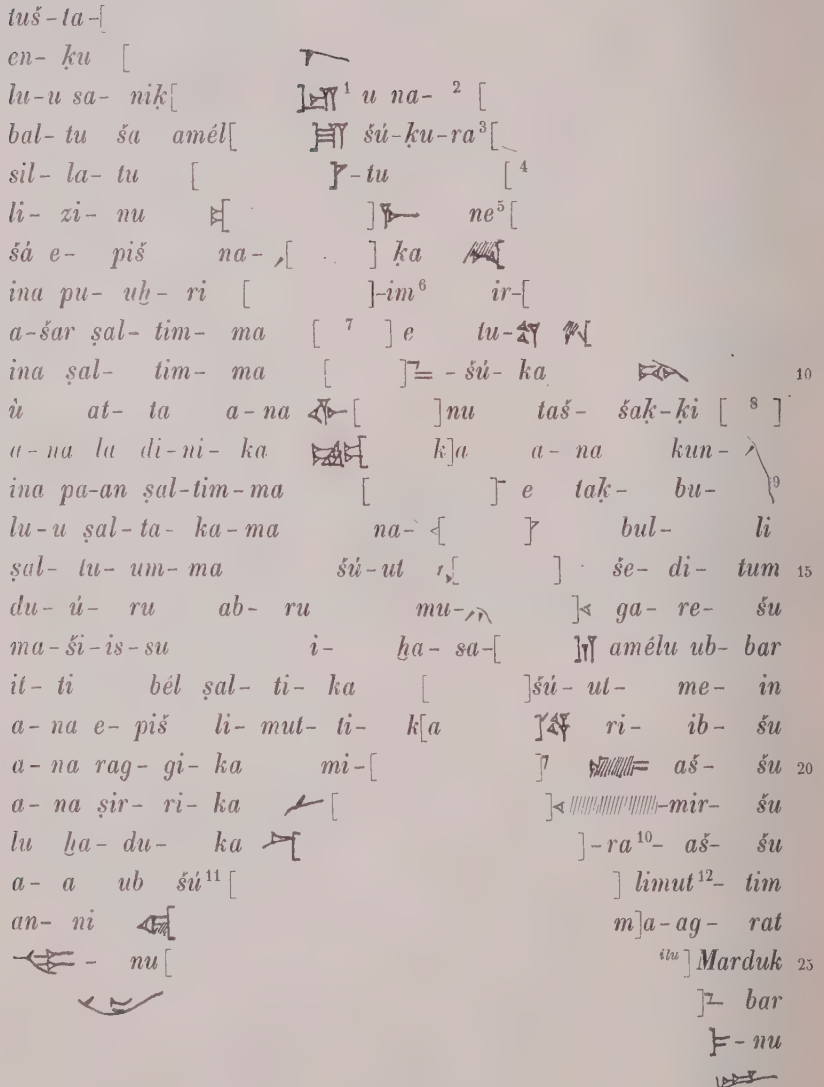 tuš-ta-[
en- ḳu [
lu-u sa- niḳ[ ] ¹ u na- ² [
bal- tu ša amél[ ] šú-ḳu-ra³[
sil- la- tu [ ]-tu [ ⁴
li- zi- nu [ ] ne⁵[
šá e- piš na- [ ] ḳa [
ina pu- uḫ- ri [ ]-im⁶ ir-[
a-šar ṣal- tim- ma [ ⁷ ] e tu- [
ina ṣal- tim- ma [ ] - šú- ka 10
ù at- ta a-na [ ]nu taš- šaḳ-ḳi [ ⁸ ]
a-na la di-ni-ka [ k]a a-na kun-
ina pa-an ṣal-tim-ma [ ] e taḳ- bu- ⁹
lu-u ṣal-ta- ka-ma na- [ ] bul- li
ṣal- tu- um- ma šú-ut [ ] še- di- tum 15
du- ú- ru ab- ru mu- [ ] ga- re- šu
ma-ši-is-su i- ḫa- sa-[ ] amélu ub- bar
it- ti bél ṣal- ti- ka [ ]šú- ut- me- in
a-na e-piš li- mut- ti- k[a ] ri- ib- šu
a-na rag- gi- ka mi-[ ] aš- šu 20
a-na ṣir- ri- ka [ ] -mir- šu
lu ḫa- du- ka [ ]-ra¹⁰- aš- šu
a- a ub šú¹¹ [ ] limut¹²- tim
an- ni [ m]a-ag- rat
- nu [ ⁱˡᵘ] Marduk 25
] bar
] - nu